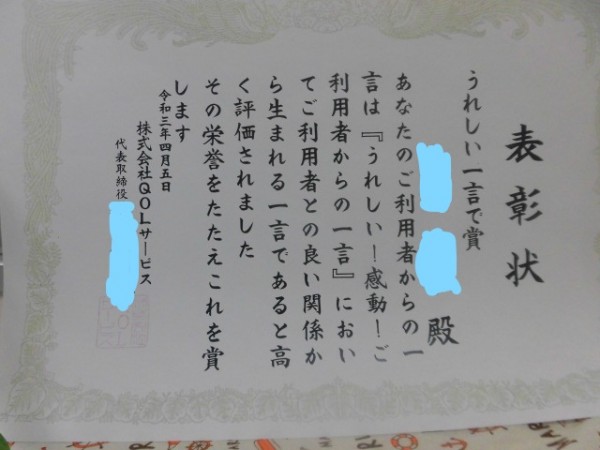 表彰状
うれしい一言で賞
殿
あなたのご利用者からの一
言は『うれしい！感動！ご
利用者からの一言』におい
てご利用者との良い関係か
ら生まれる一言であると高
く評価されました
その栄誉をたたえこれを賞
します
令和三年四月五日
株式会社QOLサービス
代表取締役